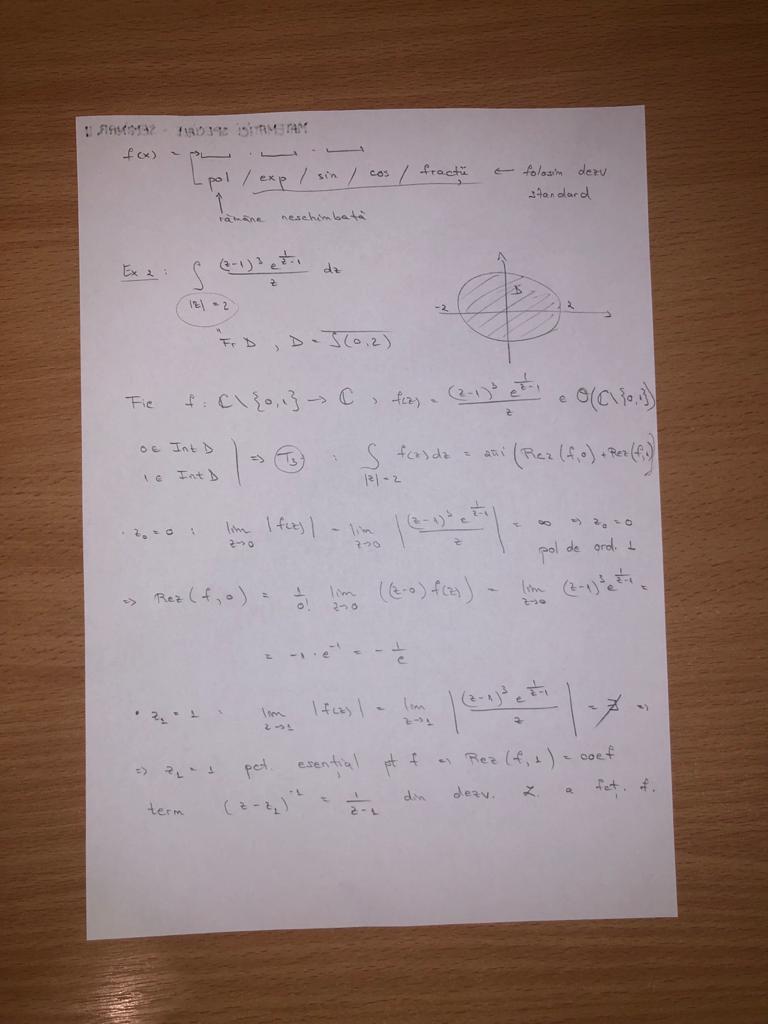 MATEMATICI SPECIALE - SEMINAR 11
f(x) =
pol / exp / sin / cos / fracții ← folosim dezv
standard
rămâne neschimbată
Ex 2 : ∫ (z-1)³ e^(1/(z-1)) / z dz
|z| = 2
D
-2 2
Fr D , D =
Fie f : ℂ \ {0,1} → ℂ , f(z) = (z-1)³ e^(1/(z-1)) / z ∈ O(ℂ\{0,1})
0 ∈ Int D
1 ∈ Int D | => T3 : ∫_{|z|=2} f(z) dz = 2πi (Rez(f,0) + Rez(f,1))
· z₀ = 0 : lim_{z→0} |f(z)| = lim_{z→0} |(z-1)³ e^(1/(z-1)) / z| = ∞ => z₀ = 0
pol de ord. 1
=> Rez(f,0) = 1/0! lim_{z→0} ((z-0) f(z)) = lim_{z→0} (z-1)³ e^(1/(z-1)) =
= -1 · e⁻¹ = - 1/e
• z₁ = 1 : lim_{z→1} |f(z)| = lim_{z→1} |(z-1)³ e^(1/(z-1)) / z| = ∄ =>
=> z₁ = 1 pct. esențial pt f => Rez(f,1) = coef
term (z-z₁)⁻¹ = 1/(z-1) din dezv. L. a fct. f.